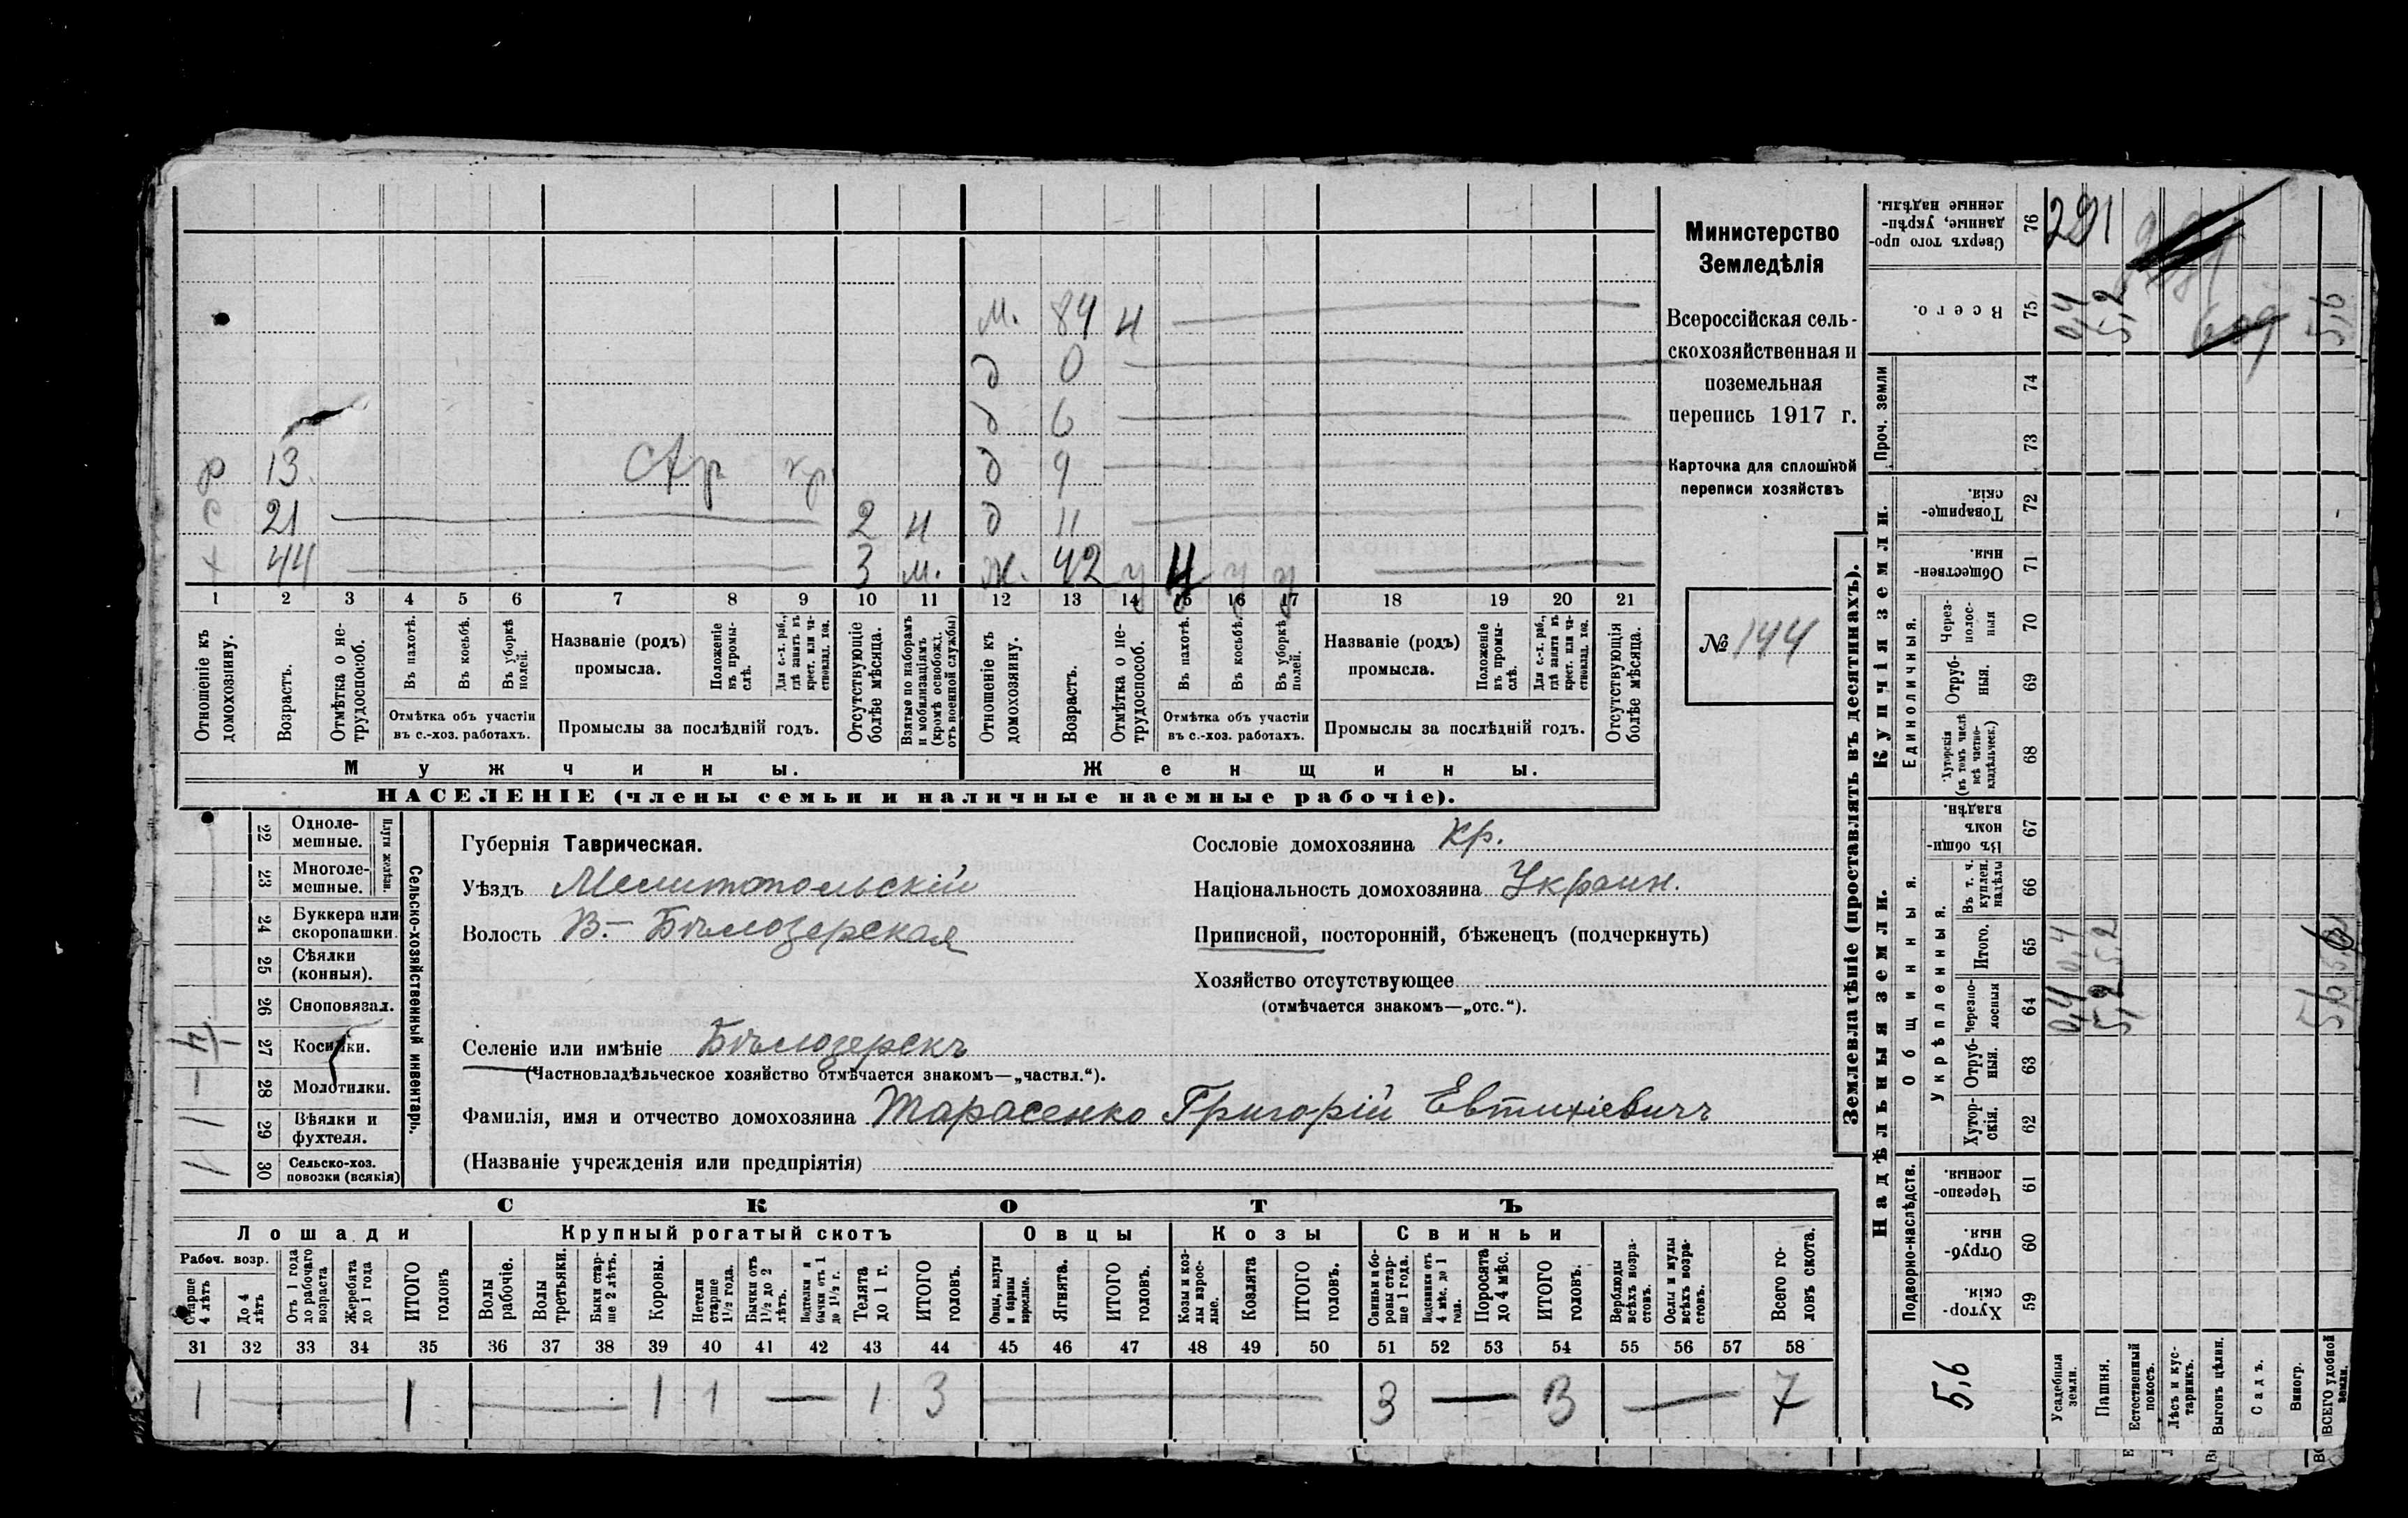 Министерство
Земледѣлія
Всероссійская сель-
скохозяйственная и
поземельная
перепись 1917 г.
Карточка для сплошной
переписи хозяйствъ
№ 144
М. 84 н
д 0
д 6
р 13 д 9
с 21 2 н д 11
х 44 3 м. ж. 42
1 2 3 4 5 6 7 8 9 10 11 12 13 14 15 16 17 18 19 20 21
Отношеніе къ домохозяину.
Возрастъ.
Отмѣтка о не-трудоспособ.
Въ пахотѣ.
Въ косьбѣ.
Въ уборкѣ полей.
Отмѣтка объ участіи
въ с.-хоз. работахъ.
Названіе (родъ)
промысла.
Положеніе въ промы-слѣ.
Для с.-х. раб., гдѣ занятъ въ крест. или ча-стновлад. хоз.
Промыслы за послѣдній годъ.
Отсутствующіе болѣе мѣсяца.
Взятые по наборамъ и мобилизаціямъ (кромѣ освобожд. отъ военной службы)
Отношеніе къ домохозяину.
Возрастъ.
Отмѣтка о не-трудоспособ.
Въ пахотѣ.
Въ косьбѣ.
Въ уборкѣ полей.
Отмѣтка объ участіи
въ с.-хоз. работахъ.
Названіе (родъ)
промысла.
Положеніе въ промы-слѣ.
Для с.-х. раб., гдѣ занята въ крест. или ча-стновлад. хоз.
Промыслы за послѣдній годъ.
Отсутствующія болѣе мѣсяца.
Мужчины.
Женщины.
НАСЕЛЕНІЕ (члены семьи и наличные наемные рабочіе).
Сельско-хозяйственный инвентарь.
Плуги желѣзн.
22 Одноле-мешные.
23 Многоле-мешные.
24 Буккера или скоропашки.
25 Сѣялки (конныя).
26 Сноповязал.
27 Косилки.
28 Молотилки.
29 Вѣялки и фухтеля.
30 Сельско-хоз. повозки (всякія)
Губернія Таврическая.
Уѣздъ Мелитопольскій
Волость В.-Бѣлозерская
Селеніе или имѣніе Бѣлозерскъ
(Частновладѣльческое хозяйство отмѣчается знакомъ—„частвл.“).
Фамилія, имя и отчество домохозяина Тарасенко Григорій Евтихіевичъ
(Названіе учрежденія или предпріятія)
Сословіе домохозяина кр.
Національность домохозяина Украин.
Приписной, посторонній, бѣженецъ (подчеркнуть)
Хозяйство отсутствующее
(отмѣчается знакомъ—„отс.“).
СКОТЪ
Лошади
Рабоч. возр.
Старше 4 лѣтъ
До 4 лѣтъ
Отъ 1 года до рабочаго возраста
Жеребята до 1 года
ИТОГО головъ
Крупный рогатый скотъ
Волы рабочіе.
Волы третьяки.
Быки стар-ше 2 лѣтъ.
Коровы.
Нетели старше 1½ года.
Бычки отъ 1½ до 2 лѣтъ.
Подтелки и бычки отъ 1 до 1½ г.
Телята до 1 г.
ИТОГО головъ.
Овцы
Овцы, валухи и бараны взрослые.
Ягнята.
ИТОГО головъ.
Козы
Козы и коз-лы взрос-лые.
Козлята
ИТОГО головъ.
Свиньи
Свиньи и бо-ровы стар-ше 1 года.
Подсвинки отъ 4 мѣс. до 1 года.
Поросята до 4 мѣс.
ИТОГО головъ.
Верблюды всѣхъ возра-стовъ.
Ослы и мулы всѣхъ возра-стовъ.
Всего го-ловъ скота.
31 32 33 34 35 36 37 38 39 40 41 42 43 44 45 46 47 48 49 50 51 52 53 54 55 56 57 58
1 — 1 — 1 1 — 1 3 — 3 — 3 — 7
Землевладѣніе (проставлять въ десятинахъ).
Надѣльныя земли.
Подворно-наслѣдств.
59 Хутор-скія.
60 Отруб-ныя.
61 Черезпо-лосныя.
Общинныя.
Укрѣпленныя.
62 Хутор-скія.
63 Отруб-ныя.
64 Черезпо-лосныя
65 Итого.
66 Въ т. ч. куплен. надѣлы
67 Въ общи-номъ владѣн.
Купчія земли.
Единоличныя.
68 Хуторскія (въ томъ числѣ всѣ частно-владѣльческ.)
69 Отруб-ныя.
70 Через-полос-ныя
71 Обществен-ныя.
72 Товарище-скія.
Проч. земли
73
74
75 Всего.
76 Сверхъ того про-данные, укрѣп-ленные надѣлы.
5,6
Усадебныя земли.
0,4 0,4 0,4
Пашня.
5,2 5,2 5,2
Естественный покосъ.
Лѣсъ и кус-тарникъ.
Выгонъ цѣлин.
Садъ.
Виногр.
ВСЕГО удобной земли.
5,6 5,6 5,6